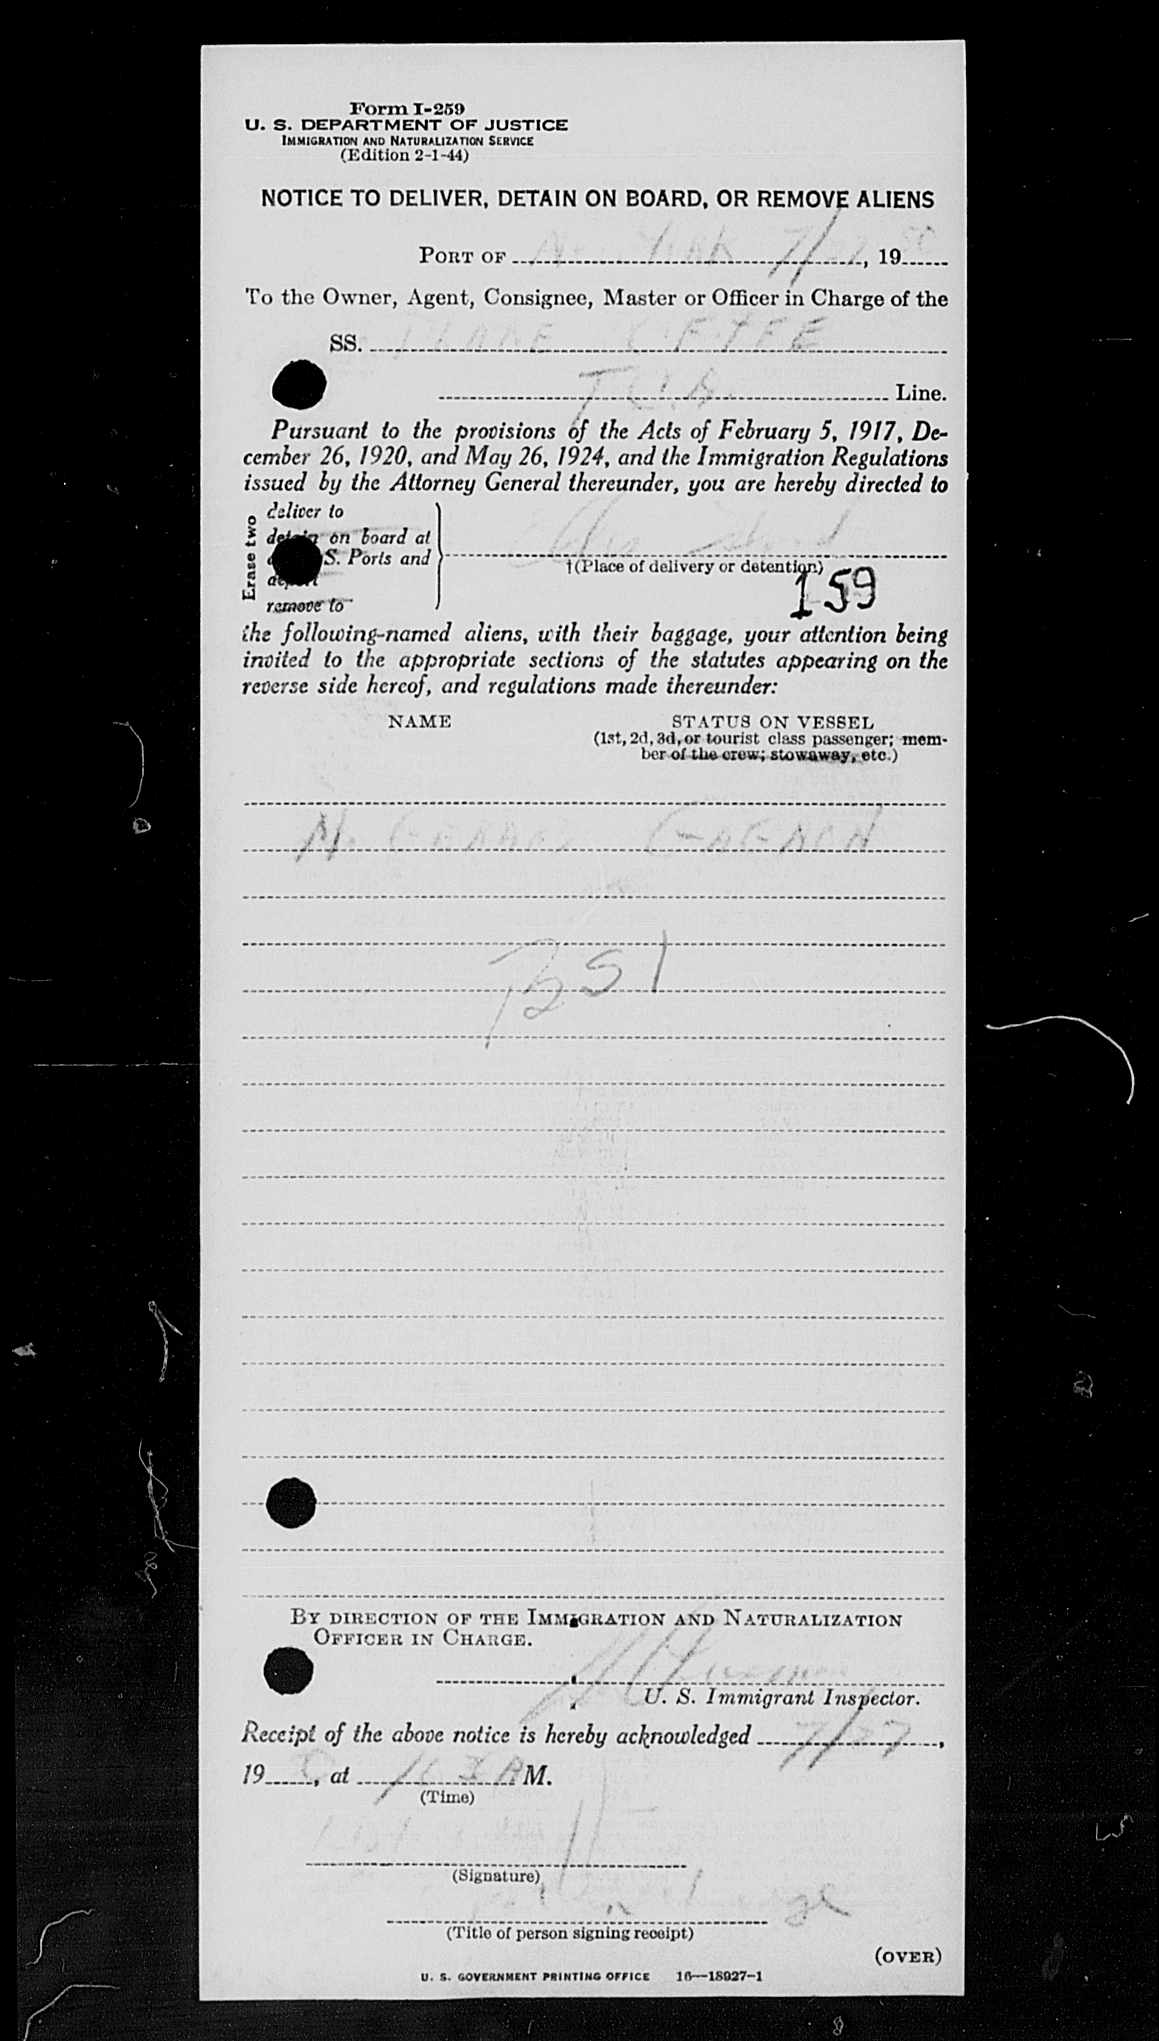 Form I-259
U. S. DEPARTMENT OF JUSTICE
IMMIGRATION AND NATURALIZATION SERVICE
(Edition 2-1-44)
NOTICE TO DELIVER, DETAIN ON BOARD, OR REMOVE ALIENS
PORT OF York 7/27, 19
To the Owner, Agent, Consignee, Master or Officer in Charge of the
SS. PLANE
Line.
Pursuant to the provisions of the Acts of February 5, 1917, De-
cember 26, 1920, and May 26, 1924, and the Immigration Regulations
issued by the Attorney General thereunder, you are hereby directed to
Erase two
deliver to
detain on board at
S. Ports and
remove to
†(Place of delivery or detention)
159
the following-named aliens, with their baggage, your attention being
invited to the appropriate sections of the statutes appearing on the
reverse side hereof, and regulations made thereunder:
NAME STATUS ON VESSEL
(1st, 2d, 3d, or tourist class passenger; mem-
ber of the crew; stowaway, etc.)
BY DIRECTION OF THE IMMIGRATION AND NATURALIZATION
OFFICER IN CHARGE.
U. S. Immigrant Inspector.
Receipt of the above notice is hereby acknowledged 7/27,
19, at M.
(Time)
(Signature)
(Title of person signing receipt)
(OVER)
U. S. GOVERNMENT PRINTING OFFICE 16—18927-1